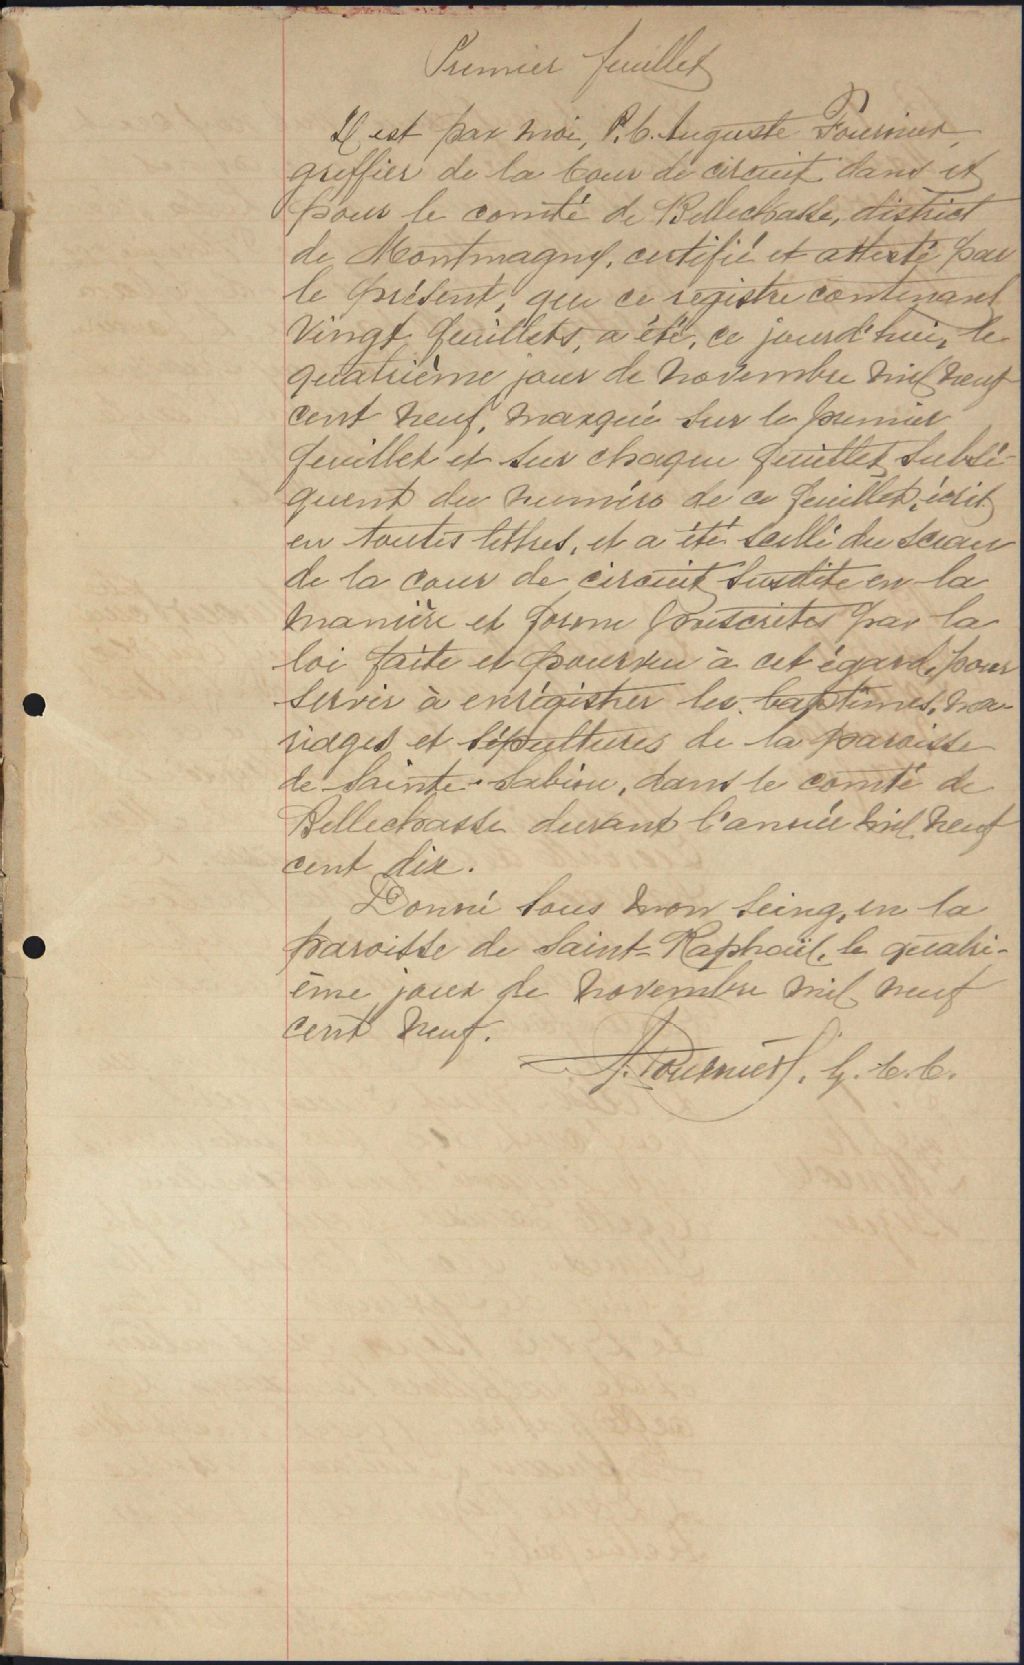 Premier feuillet
Il est par moi, P. C. Auguste Fournier,
greffier de la Cour de circuit dans et
pour le comté de Bellechasse, district
de Montmagny, certifié et attesté par
le présent, que ce registre contenant
vingt feuillets, a été, ce jourd'hui, le
quatrième jour de novembre mil neuf
cent neuf, marqué sur le premier
feuillet et sur chaque feuillet subsé-
quent du numéro de ce feuillet, écrit
en toutes lettres, et a été scellé du sceau
de la cour de circuit susdite en la
manière et forme prescrites par la
loi faite et pourvue à cet égard, pour
servir à enrégistrer les baptêmes, ma-
riages et sépultures de la paroisse
de Sainte-Sabine, dans le comté de
Bellechasse durant l'année mil neuf
cent dix.
Donné sous mon seing, en la
paroisse de Saint-Raphaël, le quatri-
ème jour de novembre mil neuf
cent neuf.
A. Fournier, G. C. C.